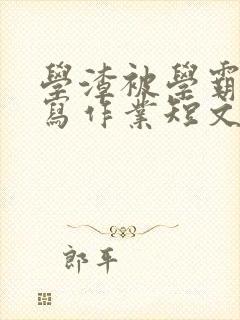 學渣被學霸
寫作業短文
郎平